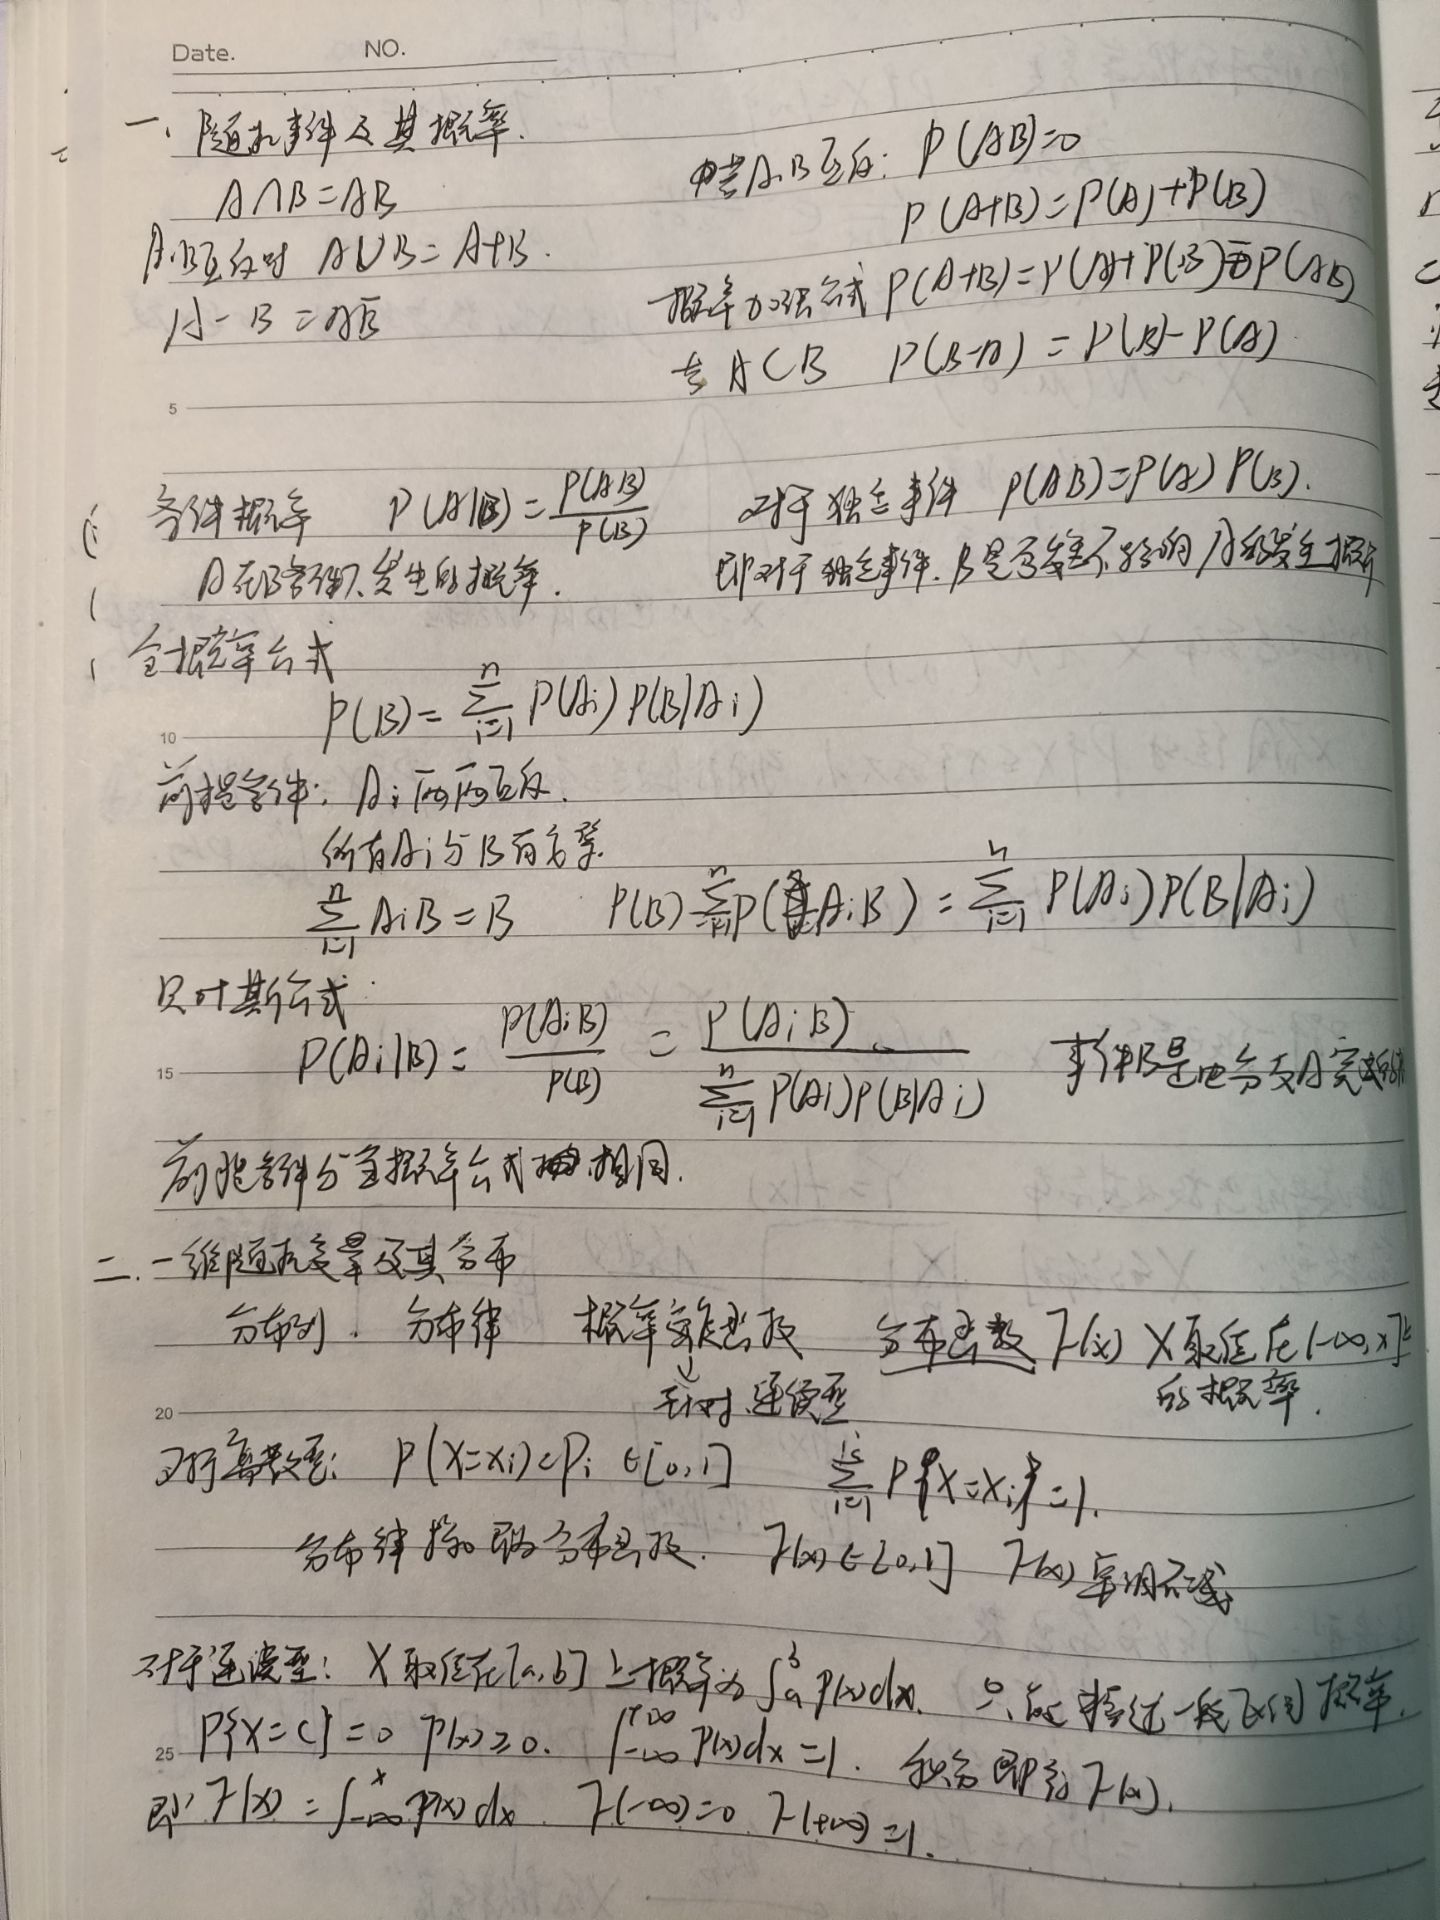 Date. NO.
一、随机事件及其概率.
A∩B=AB
A.B互斥时 A∪B=A+B.
A-B=AB̅
若A.B互斥: P(AB)=0
P(A+B)=P(A)+P(B)
概率加法公式 P(A+B)=P(A)+P(B)-P(AB)
若 A⊂B P(B-A)=P(B)-P(A)
5
条件概率 P(A|B)=P(AB)/P(B) 对于独立事件 P(AB)=P(A)P(B).
A在B条件下发生的概率. 即对于独立事件.B是否发生不影响A的发生概率
全概率公式
P(B)=∑_{i=1}^{n} P(Ai)P(B|Ai)
10
前提条件: Ai两两互斥.
所有Ai与B有关系
∑_{i=1}^{n} AiB=B P(B) ∑_{i=1}^{n} P(AiB)=∑_{i=1}^{n} P(Ai)P(B|Ai)
贝叶斯公式:
P(Ai|B)=P(AiB)/P(B)=P(AiB)/∑_{i=1}^{n} P(Ai)P(B|Ai) 事件B是由分支A完成的
15
前提条件与全概率公式相同.
二.一维随机变量及其分布
分布列. 分布律 概率密度函数 分布函数 F(x) X取值在(-∞,x]上
↓
针对连续型 的概率.
20
对于离散型: P(X=xi)=Pi ∈[0,1] ∑_{i=1} P{X=xi}=1.
分布律 即为分布函数. F(x)∈[0,1] F(x)单调不减
对于连续型: X取值在[a,b]上概率为∫_a^b p(x)dx. 只能描述一段区间概率.
25
P{X=C}=0 p(x)≥0. ∫_{-∞}^{+∞} p(x)dx=1. 积分即为F(x).
即F(x)=∫_{-∞}^{x} p(x)dx F(-∞)=0 F(+∞)=1.